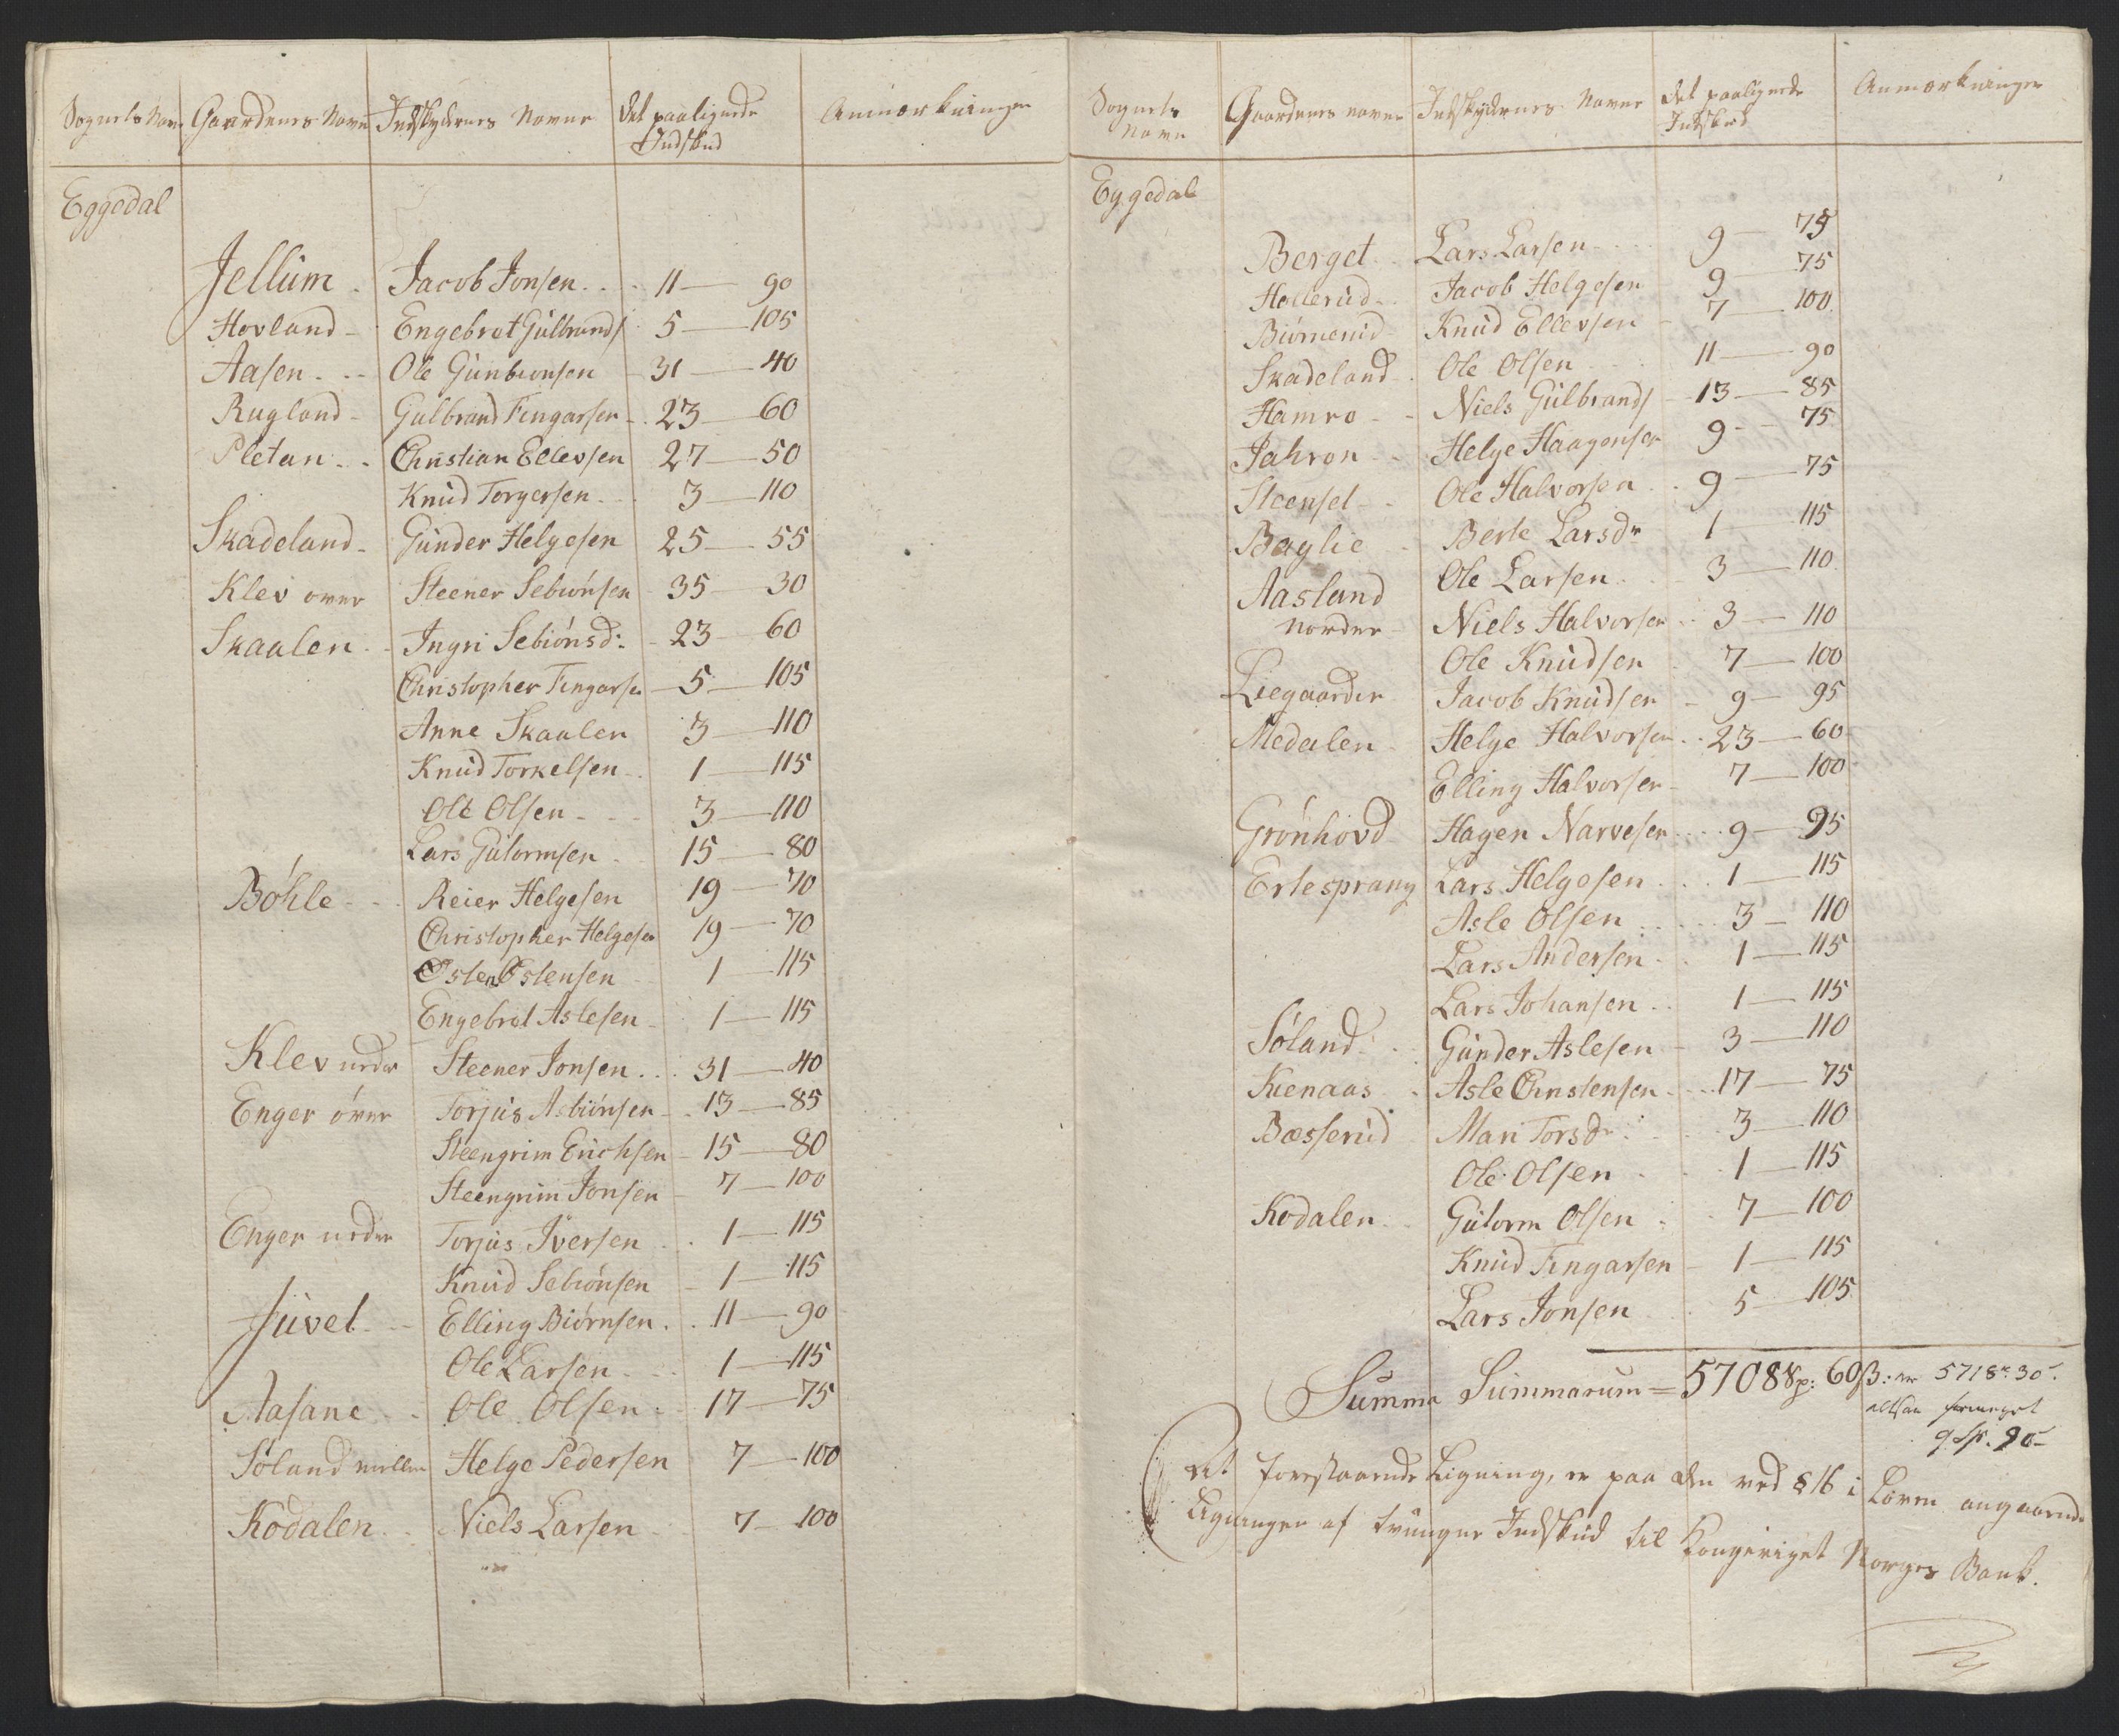 Sognets Navn Gaardenes Navne Indskydernes Navne Det paalignede Indskud Anmærkninger
Eggedal
Jellum Jacob Jonsen 11 — 90
Hovland Engebret Gulbrands 5 — 105
Aasen Ole Gunbiønsen 31 — 40
Rugland Gulbrand Fingarsen 23 — 60
Pletan Christian Ellevsen 27 — 50
Knud Torgersen 3 — 110
Skadeland Gunder Helgesen 25 — 55
Klev over Steener Sebiønsen 35 — 30
Skaalen Ingri Sebiønsd: 23 — 60
Christopher Fingarsen 5 — 105
Anne Skaalen 3 — 110
Knud Torkelsen 1 — 115
Ole Olsen 3 — 110
Lars Gutormsen 15 — 80
Bøhle Reier Helgesen 19 — 70
Christopher Helgesen 19 — 70
Østen Østensen 1 — 115
Engebret Aslesen 1 — 115
Klev neder Steener Jonsen 31 — 40
Enger øver Torjus Asbiønsen 13 — 85
Steengrim Erichsen 15 — 80
Steengrim Jonsen 7 — 100
Enger neder Torjus Iversen 1 — 115
Knud Sebiønsen 1 — 115
Juvet Elling Biørnsen 11 — 90
Ole Larsen 1 — 115
Aasane Ole Olsen 17 — 75
Søland mellem Helge Pedersen 7 — 100
Kodalen Niels Larsen 7 — 100
Sognets Navn Gaardenes navne Indskydernes Navne Det paalignede Indskud Anmærkninger
Eggedal
Berget Lars Larsen 9 — 75
Hollerud Jacob Helgesen 9 — 75
Biørnerud Knud Ellevsen 7 — 100
Skadeland Ole Olsen 11 — 90
Hamro Niels Gulbrands 13 — 85
Jahron Helge Haagensen 9 — 75
Steenset Ole Halvorsen 9 — 75
Baglie Berte Larsdr 1 — 115
Aasland Ole Larsen 3 — 110
norder Niels Halvorsen 3 — 110
Ole Knudsen 7 — 100
Liegaarden Jacob Knudsen 9 — 95
Medalen Helge Halvorsen 23 — 60
Elling Halvorsen 7 — 100
Grønhovd Hagen Narvesen 9 — 95
Ertesprang Lars Helgesen 1 — 115
Asle Olsen 3 — 110
Lars Andersen 1 — 115
Lars Johansen 1 — 115
Søland Gunder Aslesen 3 — 110
Kienaas Asle Christensen 17 — 75
Bæsserud Mari Torsdr 3 — 110
Ole Olsen 1 — 115
Kodalen Gutorm Olsen 7 — 100
Knud Fingarsen 1 — 115
Lars Jonsen 5 — 105
Summa Summarum = 5708 Sp: 60 ß: er 5718 30
altsaa formeget
9 Sp. 90
At forestaaende Ligning, er paa den ved § 16 i Loven angaaende
Ligninger af tvungne Indskud til Kongeriget Norges Bank.